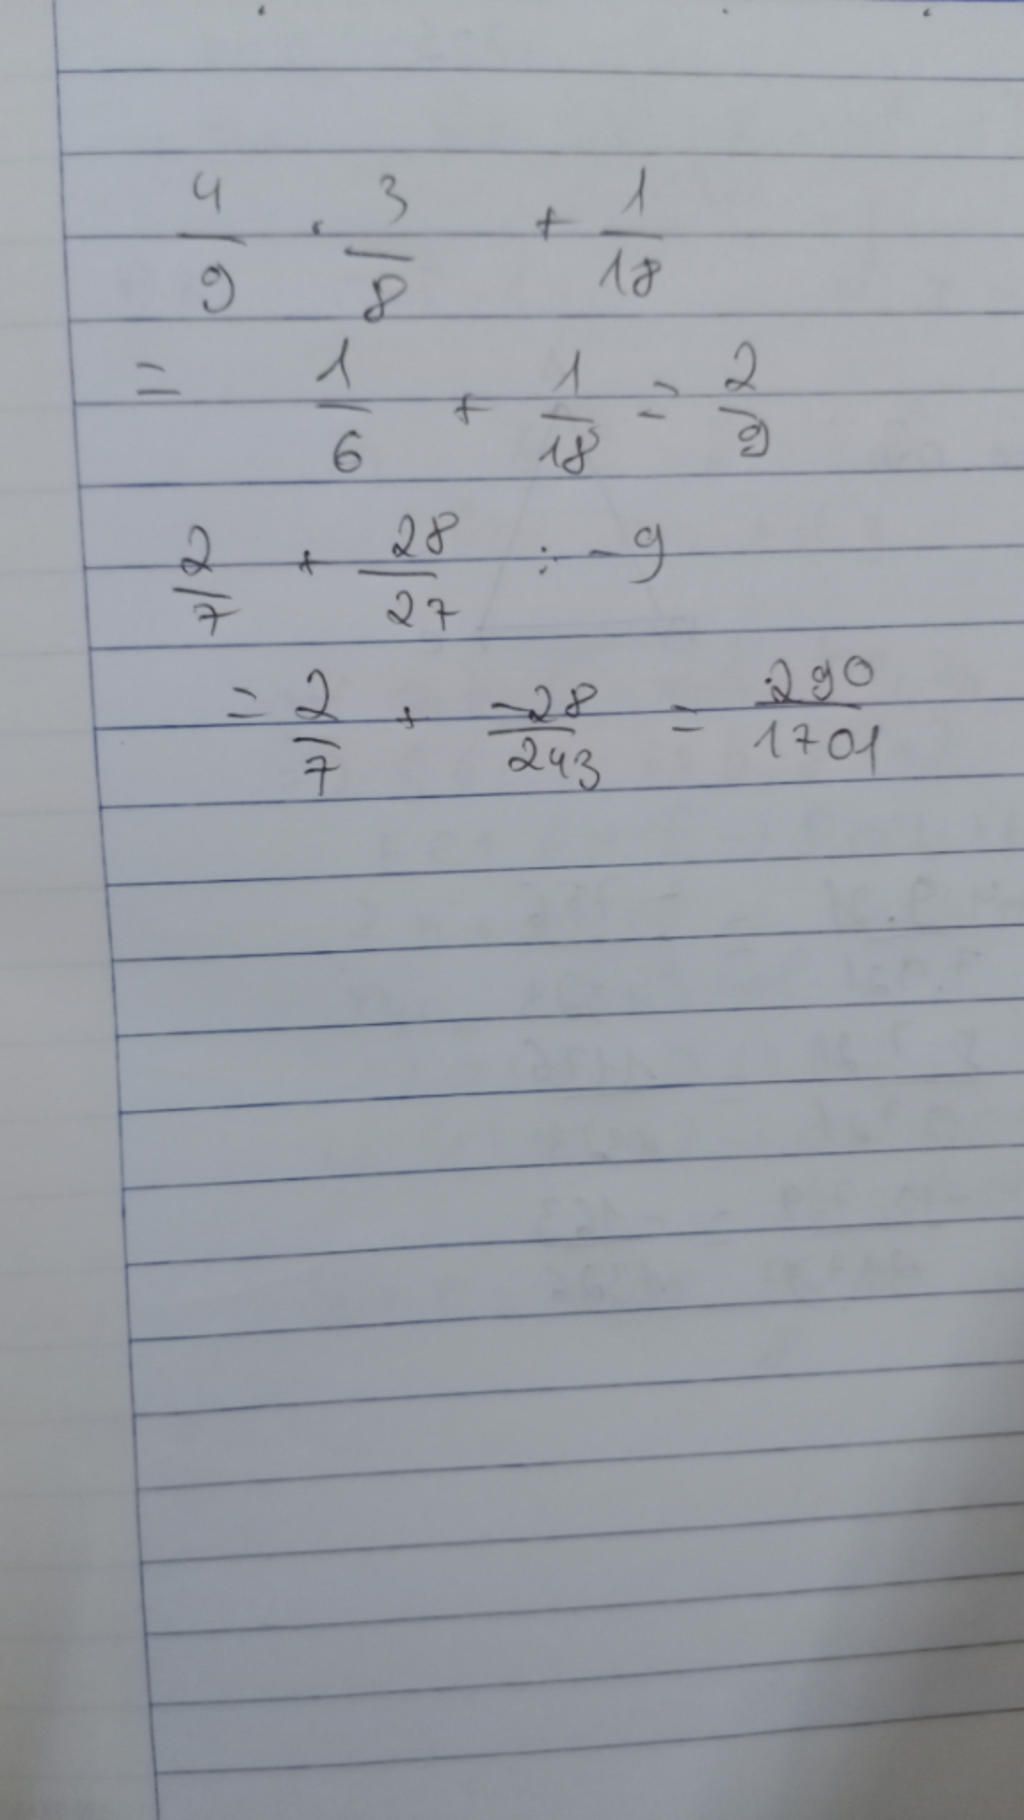 4/9 · 3/8 + 1/18
= 1/6 + 1/18 = 2/9
2/7 + 28/27 : -9
= 2/7 + -28/243 = 290/1701